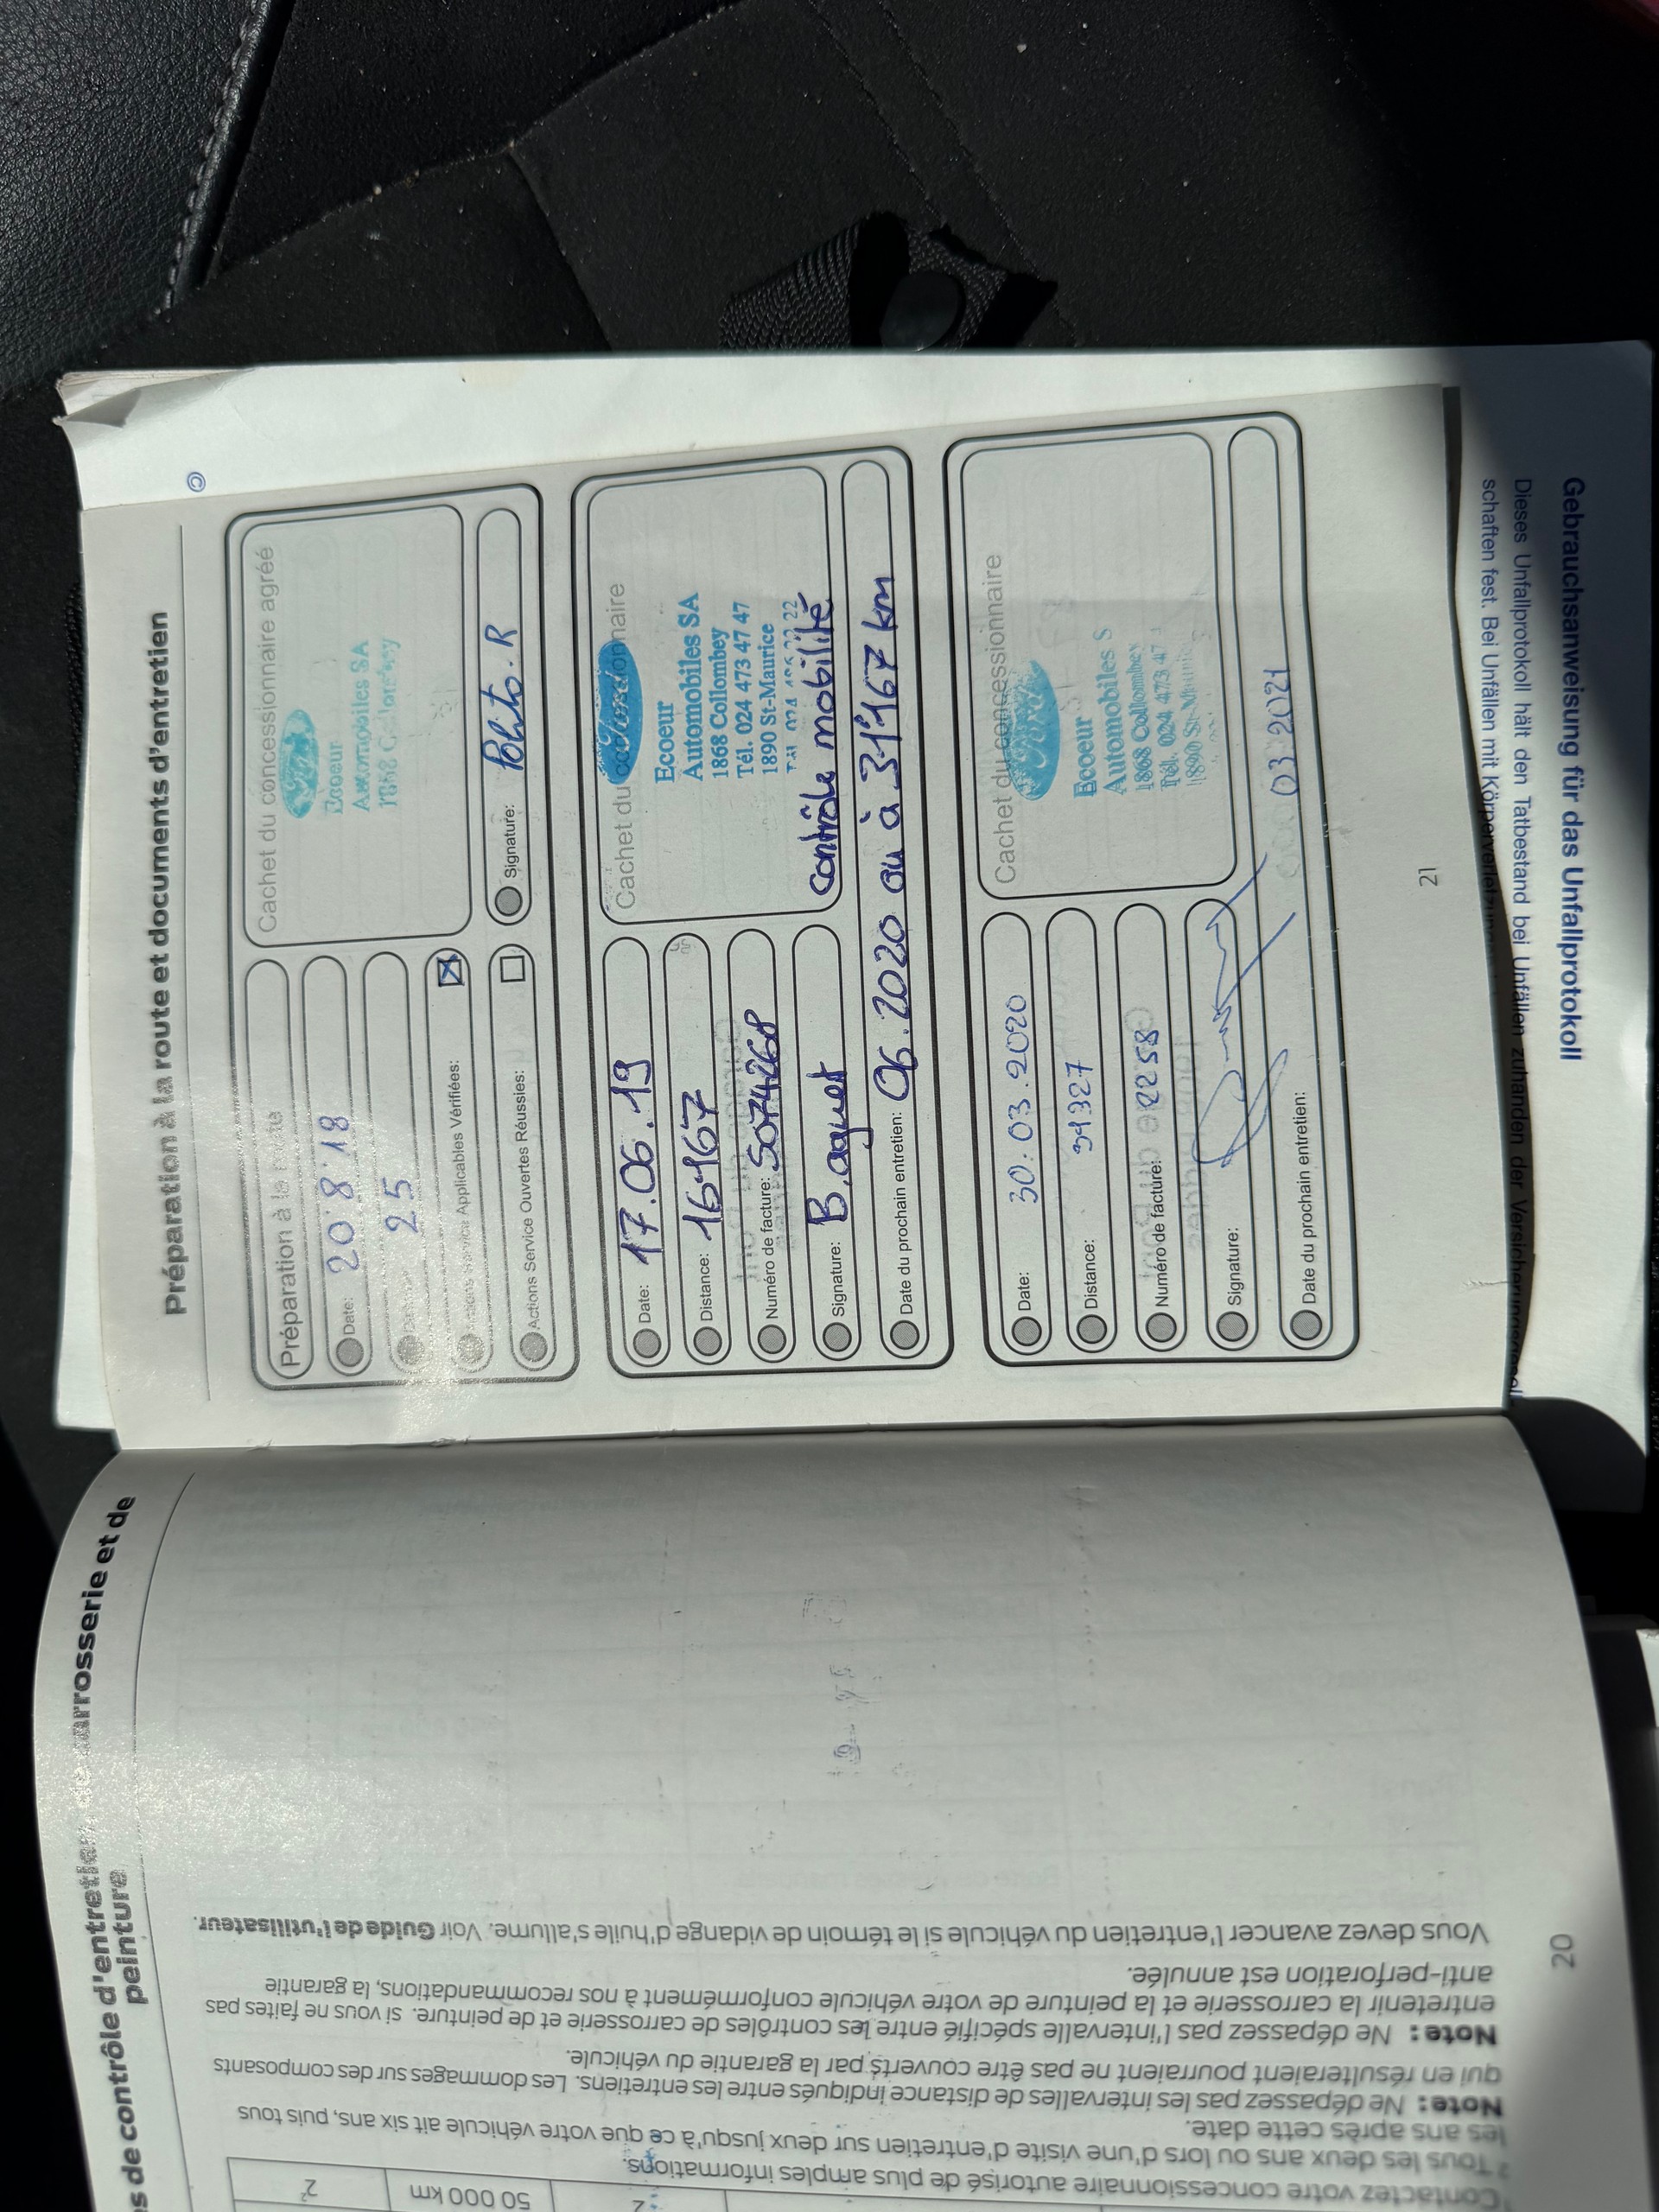 Préparation à la route et documents d'entretien
©
Préparation à la route
Date: 20.8.18
25
Applicables Vérifiées:
Actions Service Ouvertes Réussies:
Cachet du concessionnaire agréé
Ecoeur
Automobiles SA
1868 Collombey
Signature: Polito.R
Date: 17.06.19
Distance: 16167
Numéro de facture: S074268
Signature: B. aguet
Date du prochain entretien: 06.2020 ou à 31'167 km
Cachet du concessionnaire
Ford
Ecoeur
Automobiles SA
1868 Collombey
Tél. 024 473 47 47
1890 St-Maurice
contrôle mobilité
Date: 30.03.2020
Distance: 31327
Numéro de facture: 2258
Signature:
Date du prochain entretien: 03 2021
Cachet du concessionnaire
Ford
Ecoeur
Automobiles S
1868 Collombey
Tél. 024 473 47
1890 St-Maurice
21
Gebrauchsanweisung für das Unfallprotokoll
Dieses Unfallprotokoll hält den Tatbestand bei Unfällen zuhanden der Versicherungsgesell-
schaften fest. Bei Unfällen mit Körperverletzungen
de contrôle d'entretien, de carrosserie et de
peinture
50 000 km
2
¹Contactez votre concessionnaire autorisé de plus amples informations.
² Tous les deux ans ou lors d'une visite d'entretien sur deux jusqu'à ce que votre véhicule ait six ans, puis tous
les ans après cette date.
Note: Ne dépassez pas les intervalles de distance indiqués entre les entretiens. Les dommages sur des composants
qui en résulteraient pourraient ne pas être couverts par la garantie du véhicule.
Note: Ne dépassez pas l'intervalle spécifié entre les contrôles de carrosserie et de peinture. si vous ne faites pas
entretenir la carrosserie et la peinture de votre véhicule conformément à nos recommandations, la garantie
anti-perforation est annulée.
Vous devez avancer l'entretien du véhicule si le témoin de vidange d'huile s'allume. Voir Guide de l'utilisateur.
20